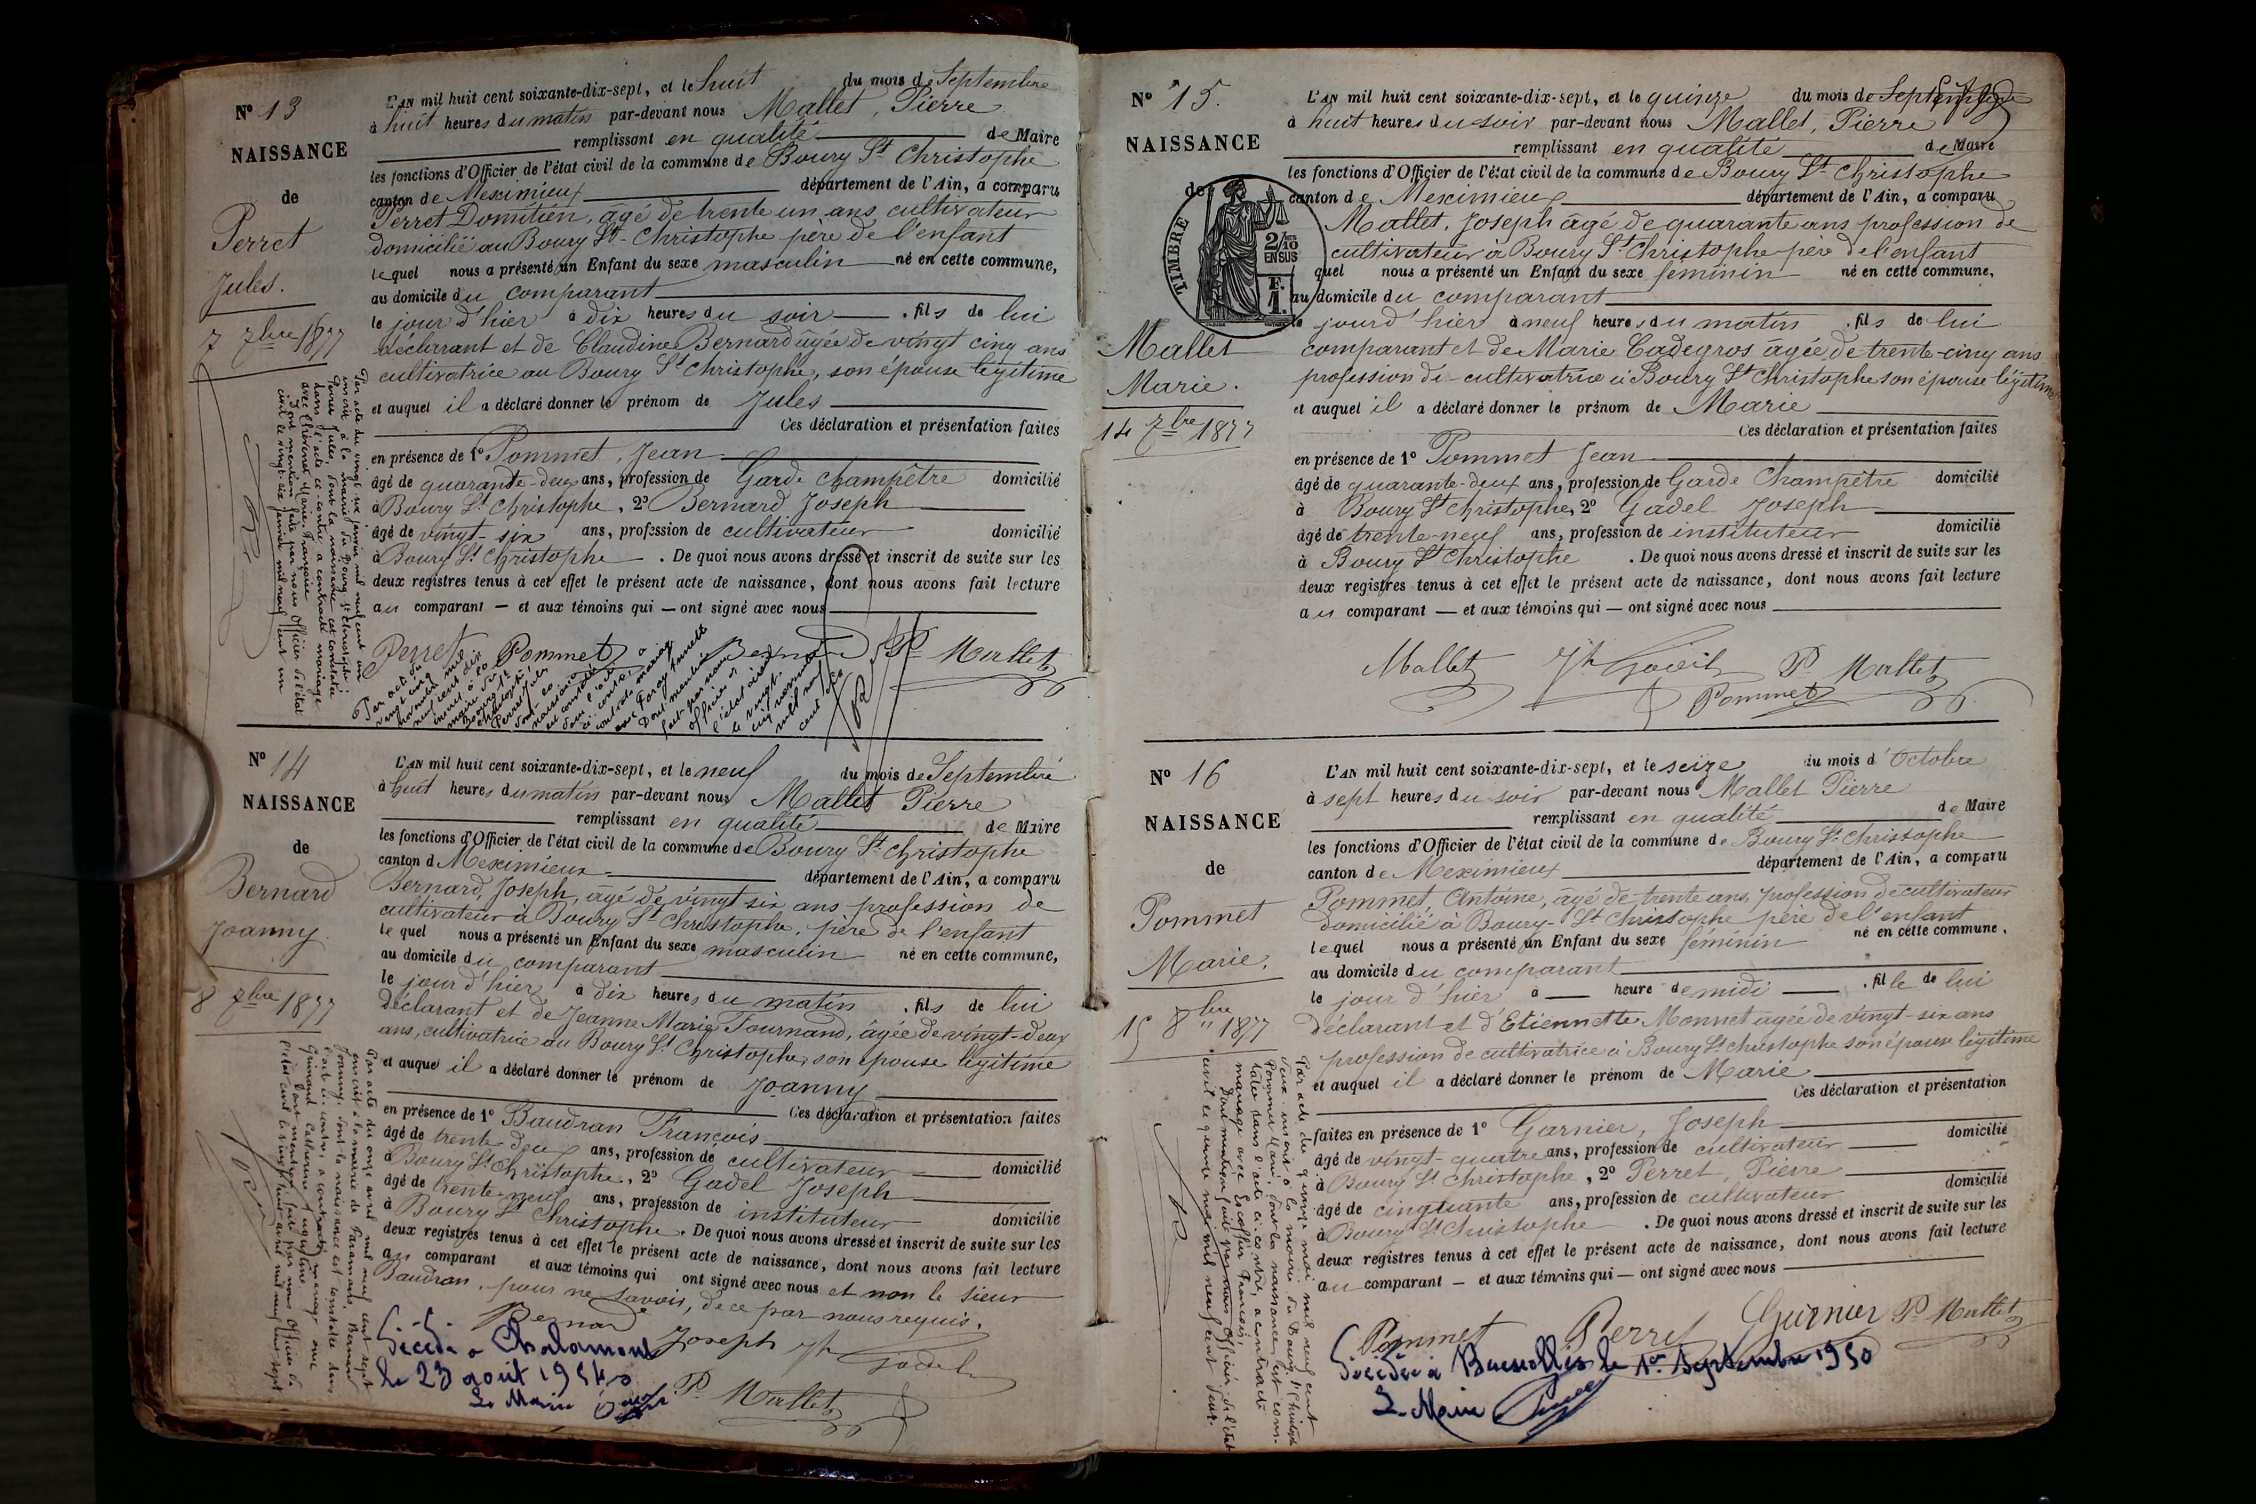 N° 13
NAISSANCE
de
Perret
Jules.
7 7bre 1877
L'AN mil huit cent soixante-dix-sept, et le huit du mois de Septembre
à huit heures du matin par-devant nous Mallet, Pierre
remplissant en qualité de Maire
les fonctions d'Officier de l'état civil de la commune de Bourg St Christophe
canton de Meximieux département de l'Ain, a comparu
Perret Domitien, âgé de trente un ans, cultivateur
domicilié au Bourg St-Christophe père de l'enfant
lequel nous a présenté un Enfant du sexe masculin né en cette commune,
au domicile du comparant
le jour d'hier à dix heures du soir . fils de lui
déclarant et de Claudine Bernard âgée de vingt cinq ans
cultivatrice au Bourg St Christophe, son épouse légitime
et auquel il a déclaré donner le prénom de Jules
Ces déclaration et présentation faites
en présence de 1° Pommet, Jean
âgé de quarante-deux ans, profession de Garde champêtre domicilié
à Bourg St Christophe, 2° Bernard Joseph
âgé de vingt-six ans, profession de cultivateur domicilié
à Bourg St Christophe . De quoi nous avons dressé et inscrit de suite sur les
deux registres tenus à cet effet le présent acte de naissance, dont nous avons fait lecture
au comparant — et aux témoins qui — ont signé avec nous
Perret Pommet Bernard P. Mallet
Par acte du vingt six janvier mil neuf cent un
inscrit à la mairie du Bourg St Christophe
Perret Jules, dont la naissance est constatée
dans l'acte ci-contre a contracté mariage
avec Thévenet Marie Françoise
Dont mention faite par nous Officier de l'état
civil le vingt-six janvier mil neuf cent un
Par acte du
vingt cinq
novembre mil
neuf cent dix
inscrit à la
mairie du
Bourg St
Christophe
Perret Jules
dont la
naissance
est constatée
dans l'acte
ci-contre a
contracté mariage
avec
Dont mention
faite par nous
officier de
l'état civil
le vingt-
cinq novembre
mil neuf
cent dix
N° 14
NAISSANCE
de
Bernard
Joanny.
8 7bre 1877
L'AN mil huit cent soixante-dix-sept, et le neuf du mois de Septembre
à huit heures du matin par-devant nous Mallet Pierre
remplissant en qualité de Maire
les fonctions d'Officier de l'état civil de la commune de Bourg St Christophe
canton d Meximieux département de l'Ain, a comparu
Bernard, Joseph, âgé de vingt six ans profession de
cultivateur à Bourg St Christophe, père de l'enfant
lequel nous a présenté un Enfant du sexe masculin né en cette commune,
au domicile du comparant
le jour d'hier à dix heures du matin . fils de lui
déclarant et de Jeanne Marie Fournand, âgée de vingt-deux
ans, cultivatrice au Bourg St Christophe, son épouse légitime
et auquel il a déclaré donner le prénom de Joanny
Ces déclaration et présentation faites
en présence de 1° Baudran François
âgé de trente deux ans, profession de cultivateur domicilié
à Bourg St Christophe, 2° Gadel Joseph
âgé de trente neuf ans, profession de instituteur domicilié
à Bourg St Christophe . De quoi nous avons dressé et inscrit de suite sur les
deux registres tenus à cet effet le présent acte de naissance, dont nous avons fait lecture
au comparant et aux témoins qui ont signé avec nous et non le sieur
Baudran, pour ne savoir, de ce par nous requis.
Bernard Joseph Jh Gadel
P. Mallet
Par acte du onze avril mil neuf cent sept
inscrit à la mairie de Faramans, Bernard
Joanny, dont la naissance est constatée dans
l'acte ci-contre, a contracté mariage avec
Grimand Catherine Augustine
Dont mention faite par nous Officier de
l'état civil le vingt huit avril mil neuf cent sept
Décédé à Chalamont
le 23 août 1954
Le Maire
N° 15.
NAISSANCE
de
TIMBRE
2/10
EN SUS
F.
1.
Mallet
Marie.
14 7bre 1877
L'AN mil huit cent soixante-dix-sept, et le quinze du mois de Septembre
à huit heures du soir par-devant nous Mallet, Pierre
remplissant en qualité de Maire
les fonctions d'Officier de l'état civil de la commune de Bourg St Christophe
canton de Meximieux département de l'Ain, a comparu
Mallet, Joseph âgé de quarante ans profession de
cultivateur à Bourg St Christophe père de l'enfant
quel nous a présenté un Enfant du sexe féminin né en cette commune,
au domicile du comparant
le jour d'hier à neuf heures du matin . fils de lui
comparant et de Marie Cadegros âgée de trente-cinq ans
profession de cultivatrice à Bourg St Christophe son épouse légitime
et auquel il a déclaré donner le prénom de Marie
Ces déclaration et présentation faites
en présence de 1° Pommet Jean
âgé de quarante-deux ans, profession de Garde Champêtre domicilié
à Bourg St Christophe, 2° Gadel Joseph
âgé de trente neuf ans, profession de instituteur domicilié
à Bourg St Christophe . De quoi nous avons dressé et inscrit de suite sur les
deux registres tenus à cet effet le présent acte de naissance, dont nous avons fait lecture
au comparant — et aux témoins qui — ont signé avec nous
Mallet Jh Gadel P. Mallet
Pommet
N° 16
NAISSANCE
de
Pommet
Marie.
15 8bre 1877
L'AN mil huit cent soixante-dix-sept, et le seize du mois d'Octobre
à sept heures du soir par-devant nous Mallet Pierre
remplissant en qualité de Maire
les fonctions d'Officier de l'état civil de la commune de Bourg St Christophe
canton de Meximieux département de l'Ain, a comparu
Pommet, Antoine, âgé de trente ans, profession de cultivateur
domicilié à Bourg-St Christophe père de l'enfant
lequel nous a présenté un Enfant du sexe féminin né en cette commune,
au domicile du comparant
le jour d'hier à — heure de midi . fille de lui
déclarant et d'Etiennette Monnet âgée de vingt-six ans
profession de cultivatrice à Bourg St Christophe son épouse légitime
et auquel il a déclaré donner le prénom de Marie
Ces déclaration et présentation
faites en présence de 1° Garnier, Joseph
âgé de vingt-quatre ans, profession de cultivateur domicilié
à Bourg St Christophe, 2° Perret, Pierre
âgé de cinquante ans, profession de cultivateur domicilié
à Bourg St Christophe . De quoi nous avons dressé et inscrit de suite sur les
deux registres tenus à cet effet le présent acte de naissance, dont nous avons fait lecture
au comparant — et aux témoins qui — ont signé avec nous
Pommet Perret Garnier P. Mallet
Par acte du quinze mai mil neuf cent
deux inscrit à la mairie du Bourg St Christophe
Pommet Marie, dont la naissance est cons-
tatée dans l'acte ci-contre, a contracté
mariage avec Escoffier François,
Dont mention faite par nous Officier de l'état
civil le quinze mai mil neuf cent deux.
Décédée à le 1er Septembre 1950
Le Maire